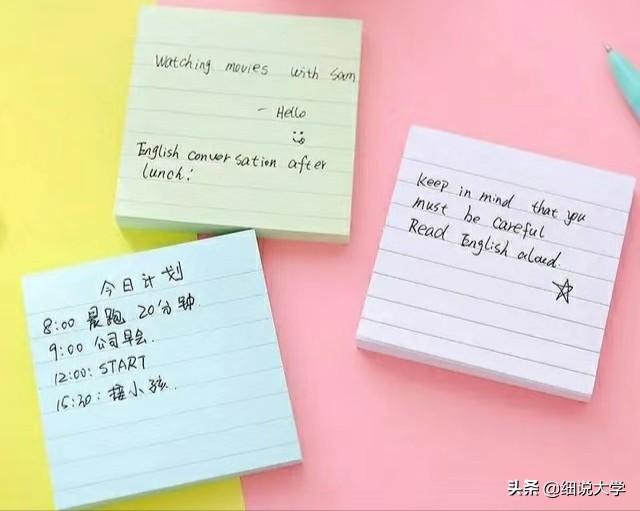 Watching movies with Sam
- Hello
English conversation after
lunch!
keep in mind that you
must be careful
Read English aloud.
今日计划
8:00 晨跑 20分钟.
9:00 公司早会.
12:00: START
15:30: 接小孩.
头条 @细说大学